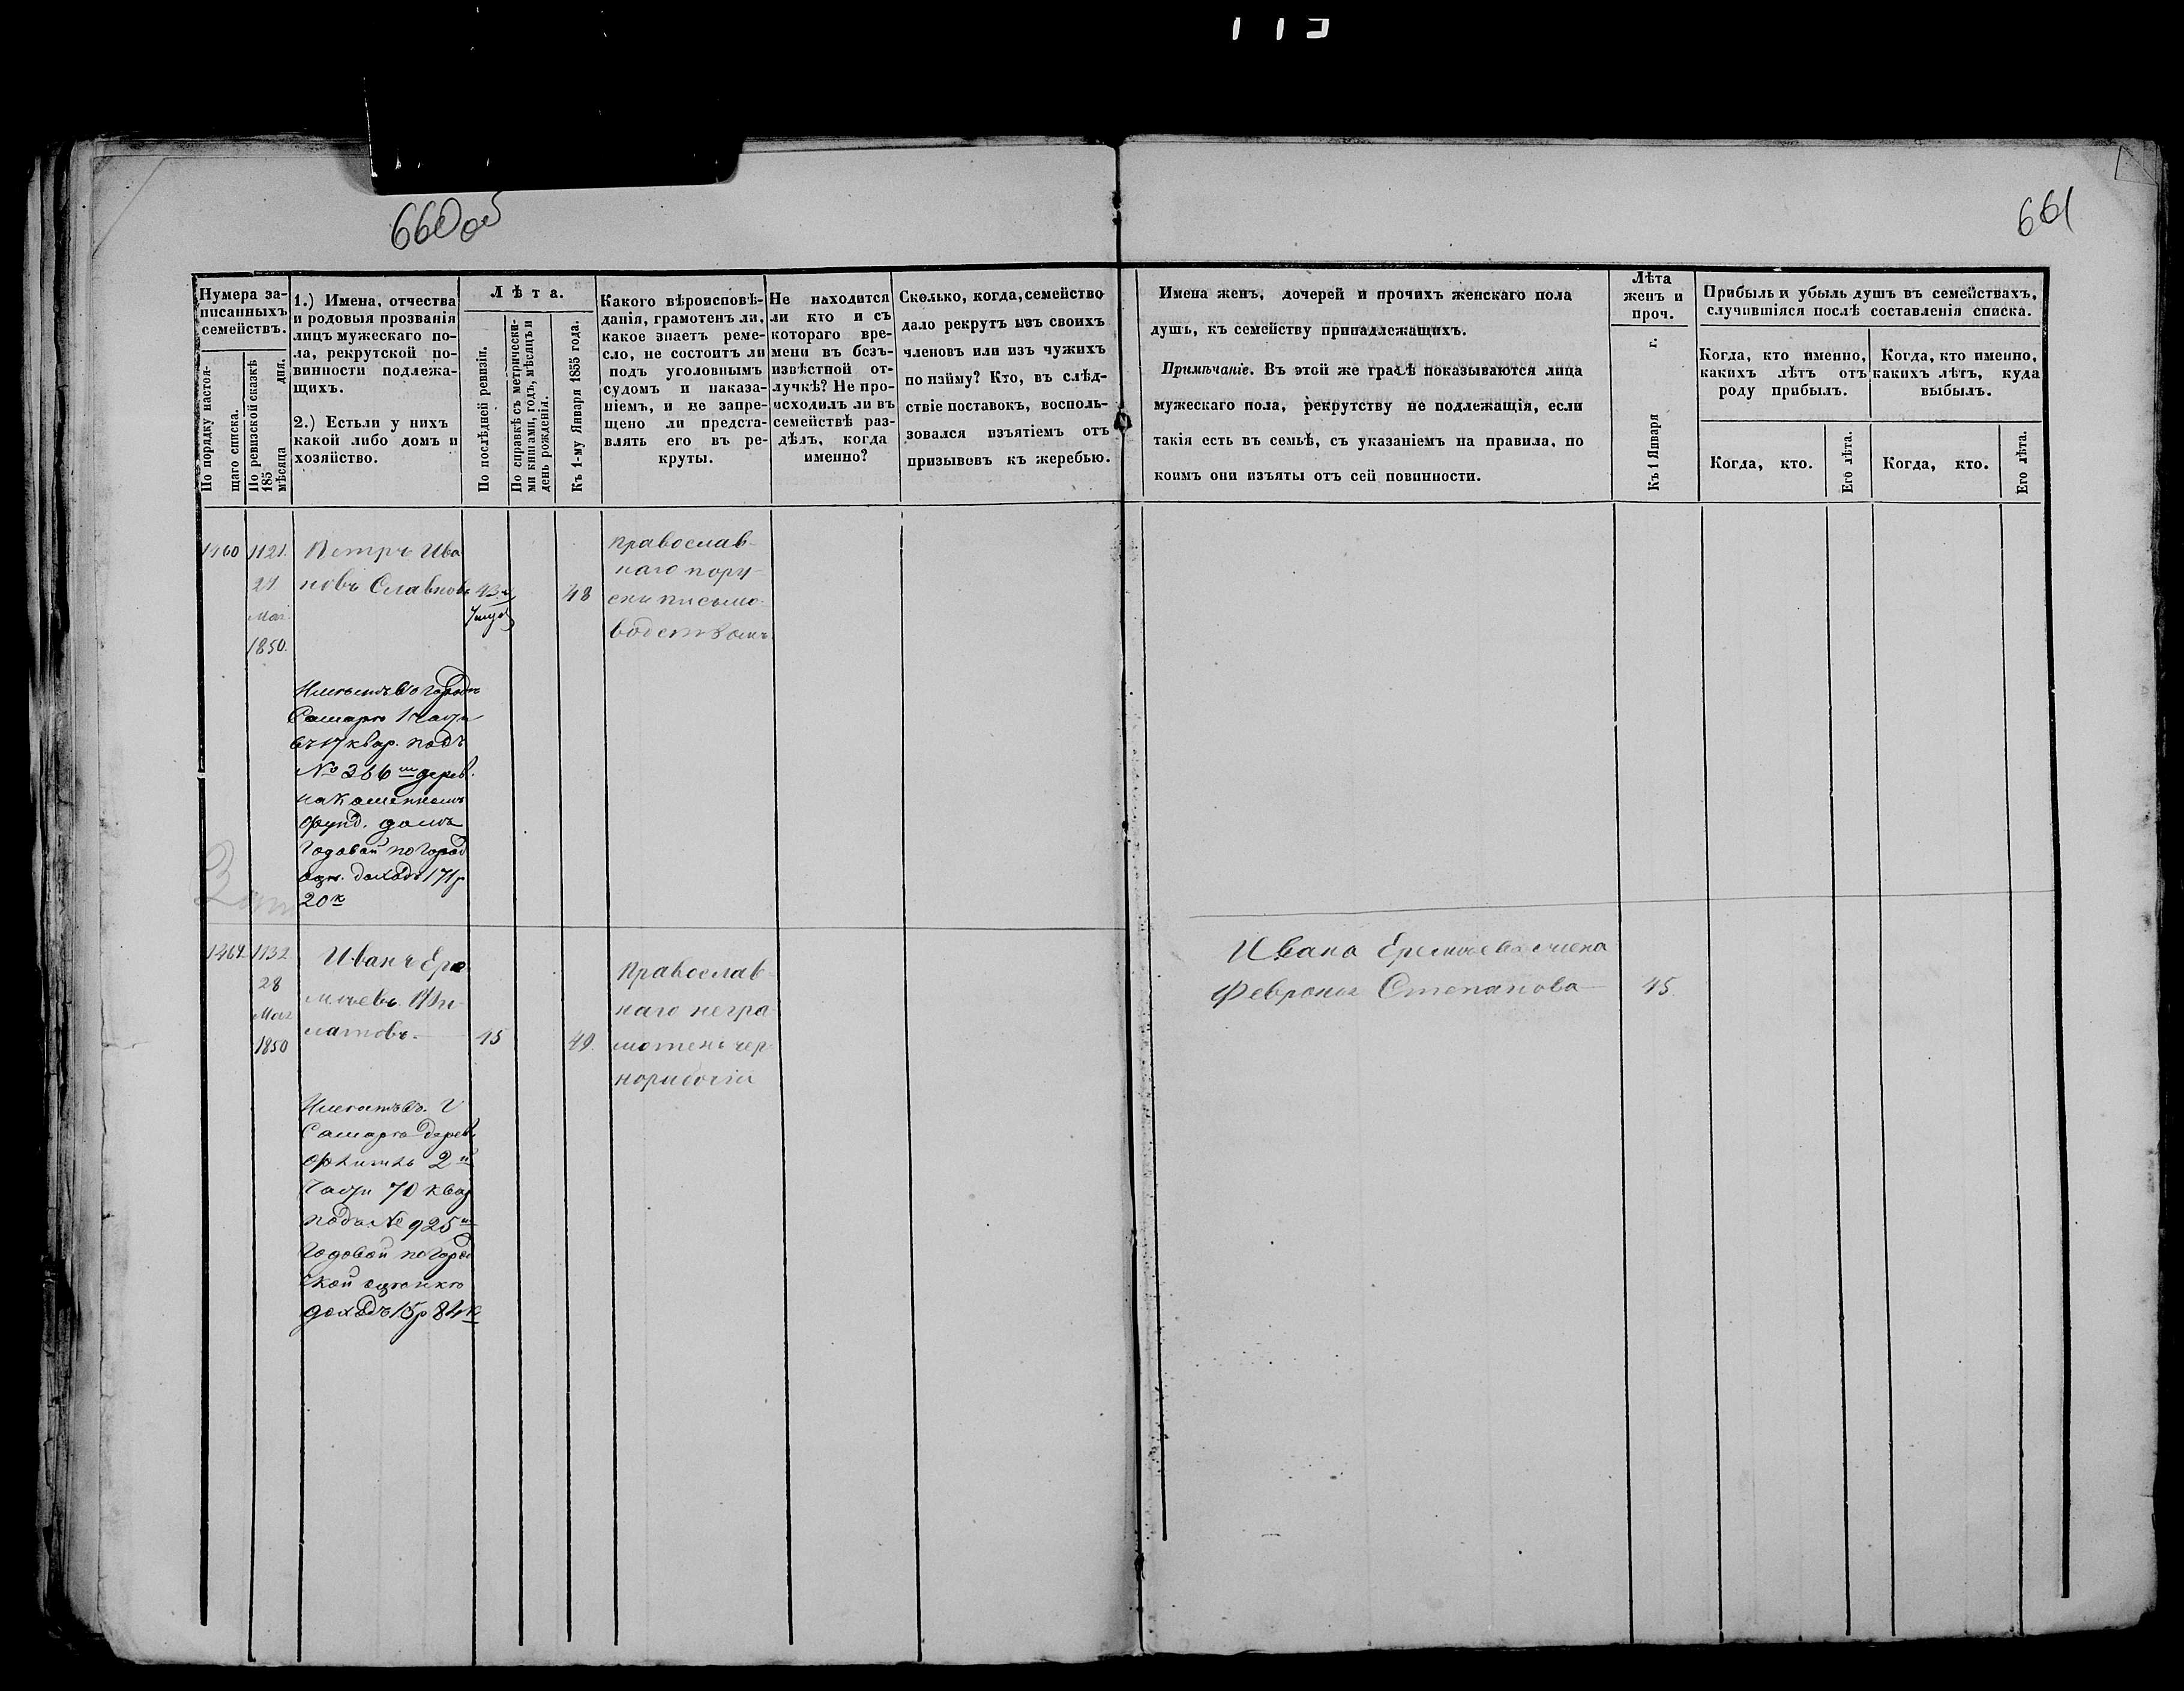 660 об
661
Нумера за-
писанныхъ
семействъ.
По порядку настоя-
щаго списка.
По ревизской сказкѣ
185 дня.
мѣсяца
1.) Имена, отчества
и родовыя прозванія
лицъ мужескаго по-
ла, рекрутской по-
винности подлежа-
щихъ.
2.) Естьли у нихъ
какой либо домъ и
хозяйство.
Лѣта.
По послѣдней ревизіи.
По справкѣ съ метрически-
ми книгами, годъ, мѣсяцъ и
день рожденія.
Къ 1-му Января 1855 года.
Какого вѣроисповѣ-
данія, грамотенъ ли,
какое знаетъ реме-
сло, не состоитъ ли
подъ уголовнымъ
судомъ и наказа-
ніемъ, и не запре-
щено ли предста-
влять его въ ре-
круты.
Не находится
ли кто и съ
котораго вре-
мени въ безъ-
извѣстной от-
лучкѣ? Не про-
исходилъ ли въ
семействѣ раз-
дѣлъ, когда
именно?
Сколько, когда, семейство
дало рекрутъ изъ своихъ
членовъ или изъ чужихъ
по найму? Кто, въ слѣд-
ствіе поставокъ, восполь-
зовался изъятіемъ отъ
призывовъ къ жеребью.
Имена женъ, дочерей и прочихъ женскаго пола
душъ, къ семейству принадлежащихъ.
Примѣчаніе. Въ этой же графѣ показываются лица
мужескаго пола, рекрутству не подлежащія, если
такія есть въ семьѣ, съ указаніемъ на правила, по
коимъ они изъяты отъ сей повинности.
Лѣта
женъ и
проч.
Къ 1 Января г.
Прибыль и убыль душъ въ семействахъ,
случившіяся послѣ составленія списка.
Когда, кто именно,
какихъ лѣтъ отъ
роду прибылъ.
Когда, кто именно,
какихъ лѣтъ, куда
выбылъ.
Когда, кто.
Его лѣта.
Когда, кто.
Его лѣта.
1460
1121.
21
Мая
1850.
Петръ Ива
новъ Славновъ
43
48
православ-
наго пору-
ски письмо-
водствомъ
Имѣетъ въ городѣ
Самарѣ 1 части
въ 17 квар. подъ
№ 366 м дерев.
на каменномъ
фунд. домъ
Годовой по город
оцѣн. доходъ 171 р
20 к
1132
28
Мая
1850
Иванъ Ере
мѣевъ Фи-
латовъ.
45
49.
Православ
наго негра
мотенъ чер-
норабочій
Имѣетъ въ г
Самарѣ дерев.
флигель 2 й
Части 70 квар
подъ № 925 м
Годовой по город
ской оцѣнкѣ
доходъ 15 р 84 к
Ивана Еремѣева жена
Февронья Степанова
45.